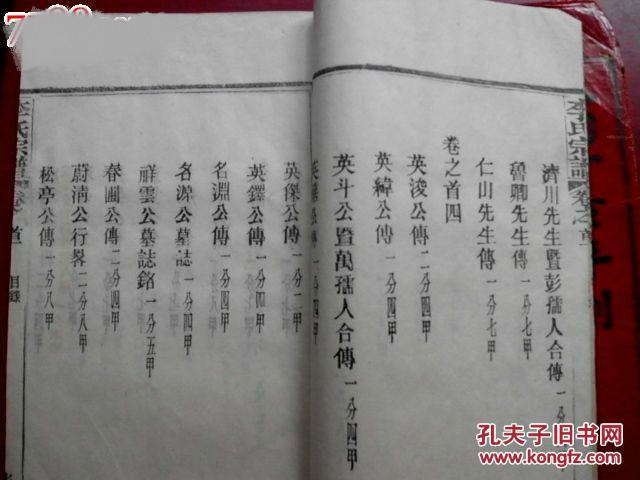 李氏宗譜 卷之首
濟川先生暨彭孺人合傳 一分
魯卿先生傳 一分七甲
仁山先生傳 一分七甲
卷之首四
英浚公傳 二分四甲
英緯公傳 一分四甲
英斗公暨萬孺人合傳 一分四甲
英傑公傳 一分一甲
英鐸公傳 一分四甲
名淵公傳 一分四甲
名源公墓誌 一分四甲
祥雲公墓誌銘 一分五甲
春圃公傳 二分八甲
蔚清公行畧 二分八甲
松亭公傳 一分八甲
李氏宗譜 卷之首 目錄
孔夫子旧书网
www.kongfz.com